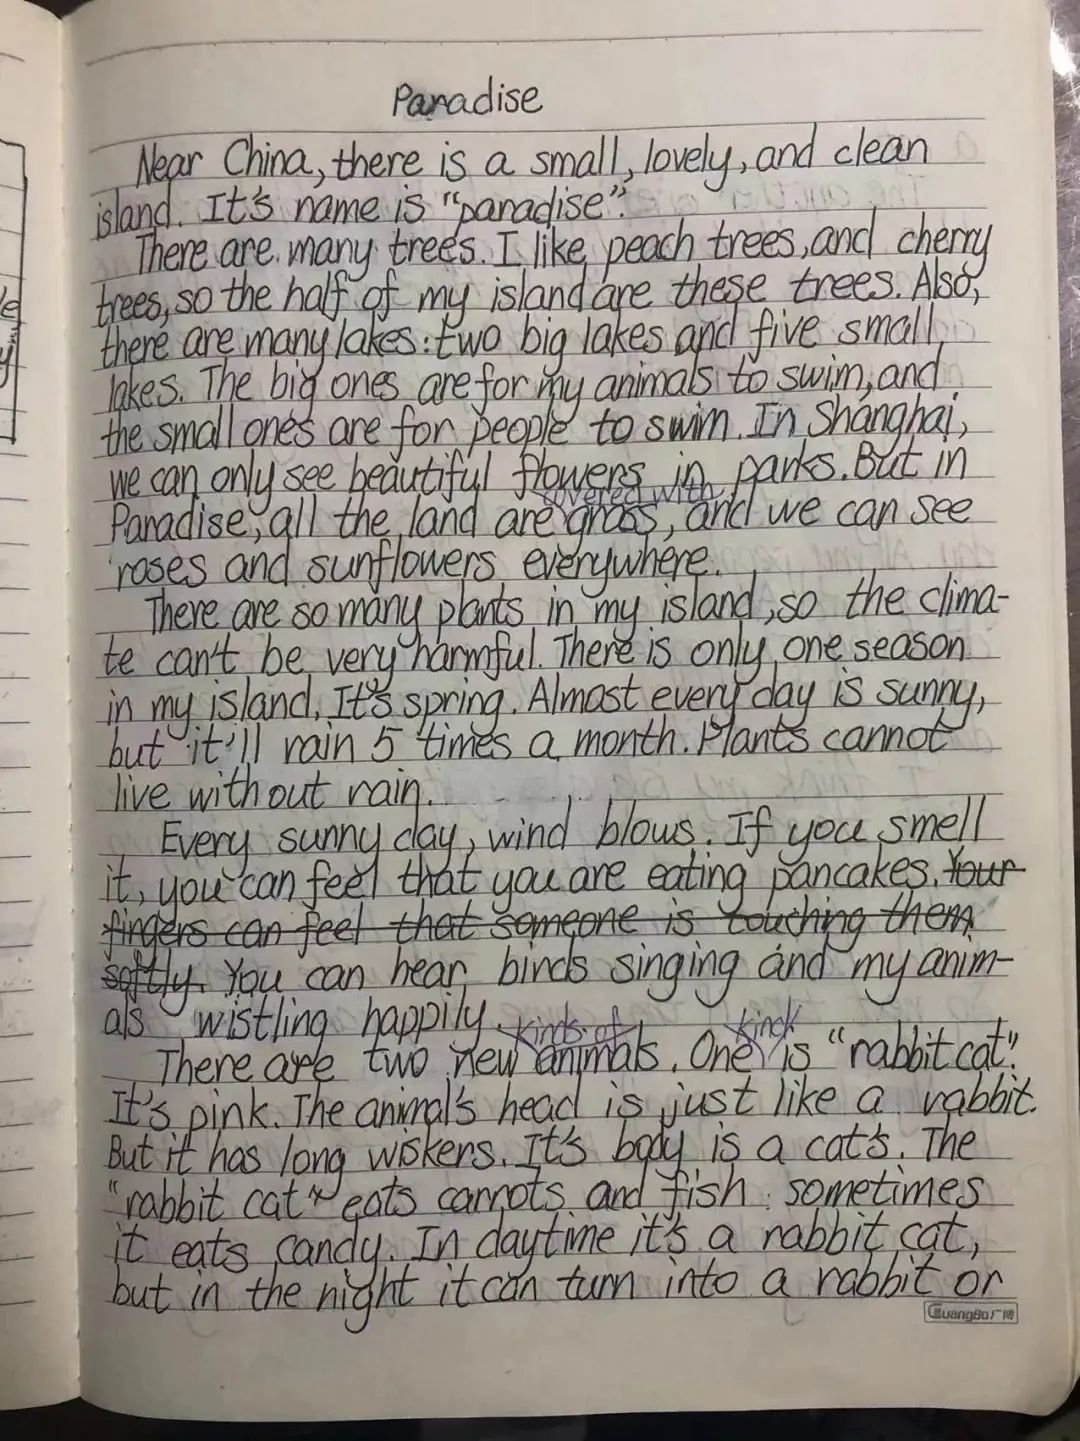 Paradise
Near China, there is a small, lovely, and clean
island. It's name is "paradise".
There are many trees. I like peach trees, and cherry
trees, so the half of my island are these trees. Also,
there are many lakes: two big lakes and five small
lakes. The big ones are for my animals to swim, and
the small ones are for people to swim. In Shanghai,
we can only see beautiful flowers in parks. But in
covered with
Paradise, all the land are grass, and we can see
roses and sunflowers everywhere.
There are so many plants in my island, so the clima-
te can't be very harmful. There is only one season
in my island. It's spring. Almost every day is sunny,
but it'll rain 5 times a month. Plants cannot
live without rain.
Every sunny day, wind blows. If you smell
it, you can feel that you are eating pancakes. Your
fingers can feel that someone is touching them
softly. You can hear birds singing and my anim-
als wistling happily.
kinds of kind
There are two new animals. One is "rabbit cat".
It's pink. The animal's head is just like a rabbit.
But it has long wiskers. It's body is a cat's. The
"rabbit cat" eats carrots and fish. sometimes
it eats candy. In daytime it's a rabbit cat,
but in the night it can turn into a rabbit or
GuangBo广博